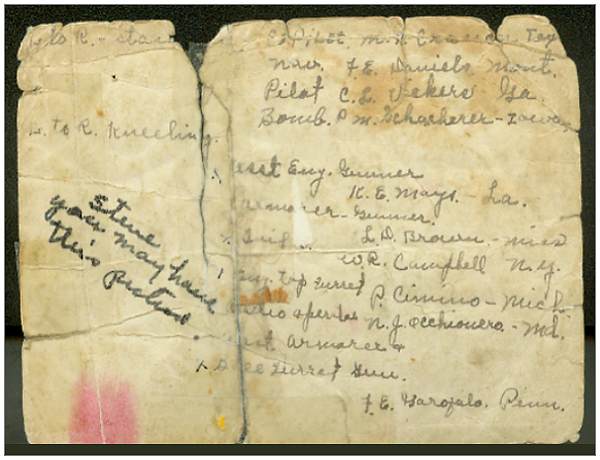 L to R. - Stan
Co Pilot M. H. Tex
Nav. F. E. Daniels Mont.
Pilot C. L. Vekers Ga.
Bomb. P. M. Schucherer - Iowa
L. to R. Kneeling.
Asst Eng. Gunner
R. E. Mays. - La.
Armorer - Gunner.
L. D. Brown - Miss
W. R. Campbell N.Y.
Eng. top turret
P. Cimino - Mich
Radio operator N. J. Occhionero - Md.
Asst Armorer &
Ball turret Gun.
F. E. Garofalo. Penn.
Steve
you may have
this picture.